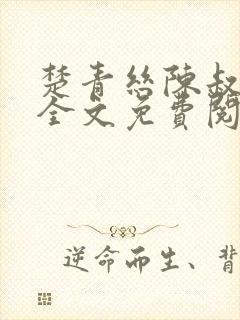 楚青絲陳叔
全文免費閱
逆命而生、背